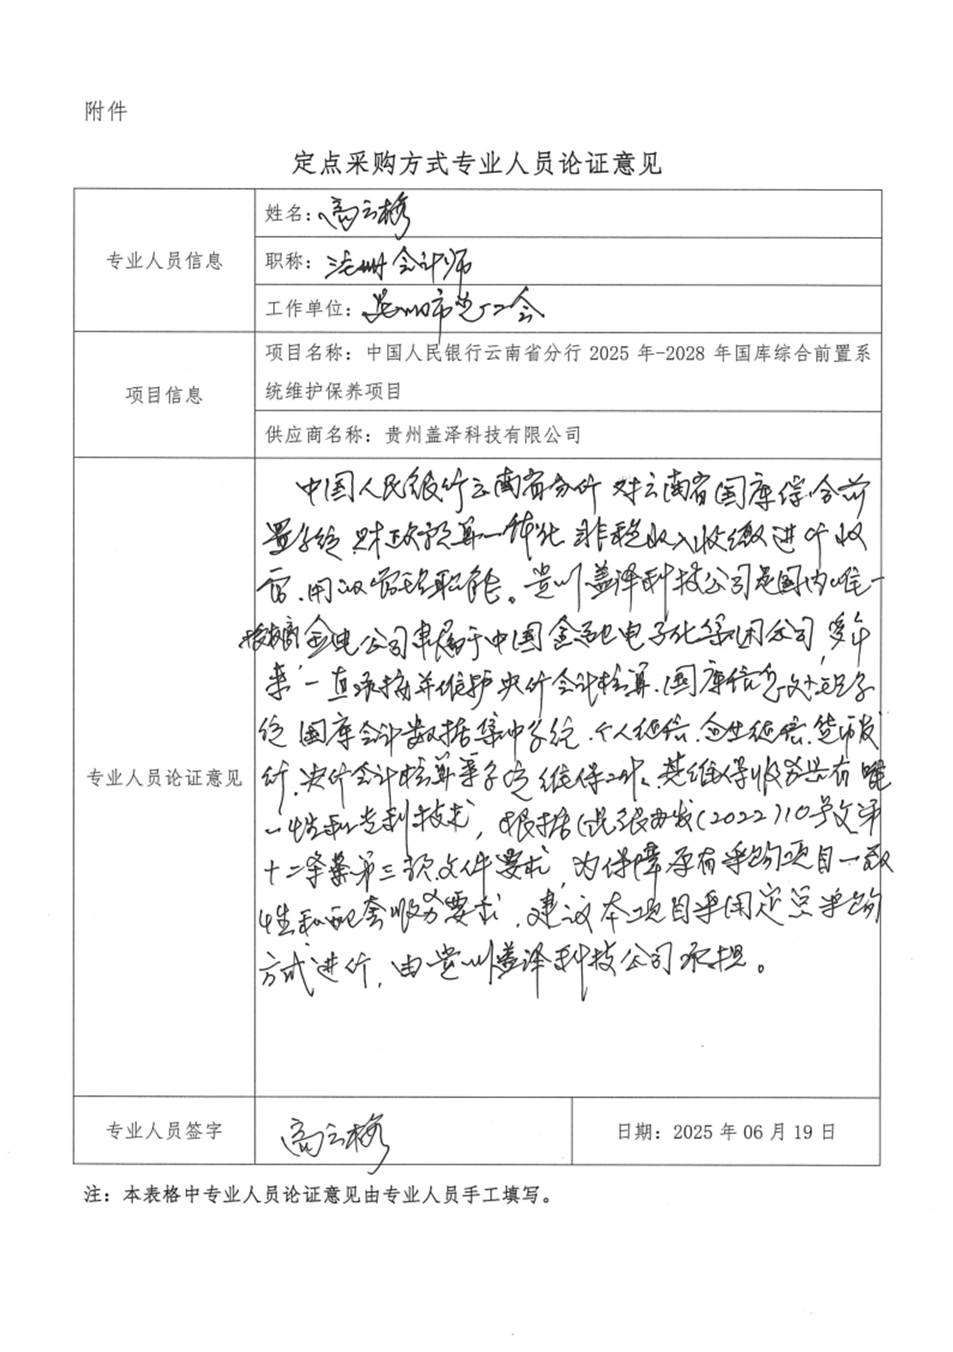 附件
定点采购方式专业人员论证意见
专业人员信息
姓名：高云梅
职称：注册会计师
工作单位：昆明市总工会
项目信息
项目名称：中国人民银行云南省分行 2025 年-2028 年国库综合前置系
统维护保养项目
供应商名称：贵州盖泽科技有限公司
专业人员论证意见
中国人民银行云南省分行对云南省国库综合前
置系统财政预算一体化非税收入收缴进行
管理职能。贵州盖泽科技公司是国内唯一
金电公司隶属于中国金融电子化集团公司，多年
来一直承接并维护央行会计核算、国库信息处理系
统国库会计数据集中系统、个人征信、企业征信、货币发
行、央行会计核算等系统维保工作、其维保服务具有唯
一性和专利技术，根据银办发（2022）10号文第
十二条第三项文件要求，为保障原有采购项目一致
性和配套服务要求，建议本项目采用定点采购
方式进行，由贵州盖泽科技公司承担。
专业人员签字
高云梅
日期：2025 年 06 月 19 日
注：本表格中专业人员论证意见由专业人员手工填写。